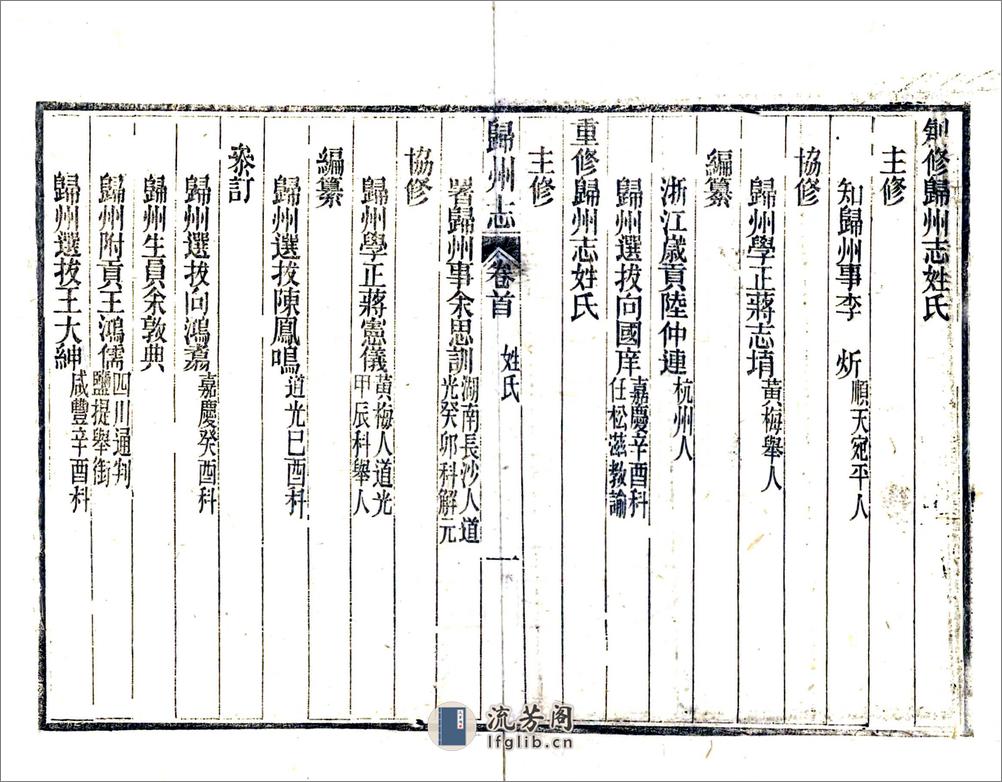 創修歸州志姓氏
主修
知歸州事李　炘 順天宛平人
協修
歸州學正蔣志堉 黃梅舉人
編纂
浙江歲貢陸仲連 杭州人
歸州選拔向國庠 嘉慶辛酉科任松滋教諭
重修歸州志姓氏
主修
署歸州事余思訓 湖南長沙人道光癸卯科解元
歸州志 卷首 姓氏 一
協修
歸州學正蔣憲儀 黃梅人道光甲辰科舉人
編纂
歸州選拔陳鳳鳴 道光己酉科
叅訂
歸州選拔向鴻翥 嘉慶癸酉科
歸州生員余敦典
歸州附貢王鴻儒 四川通判鹽提舉銜
歸州選拔王大紳 咸豐辛酉科
流芳阁
lfglib.cn